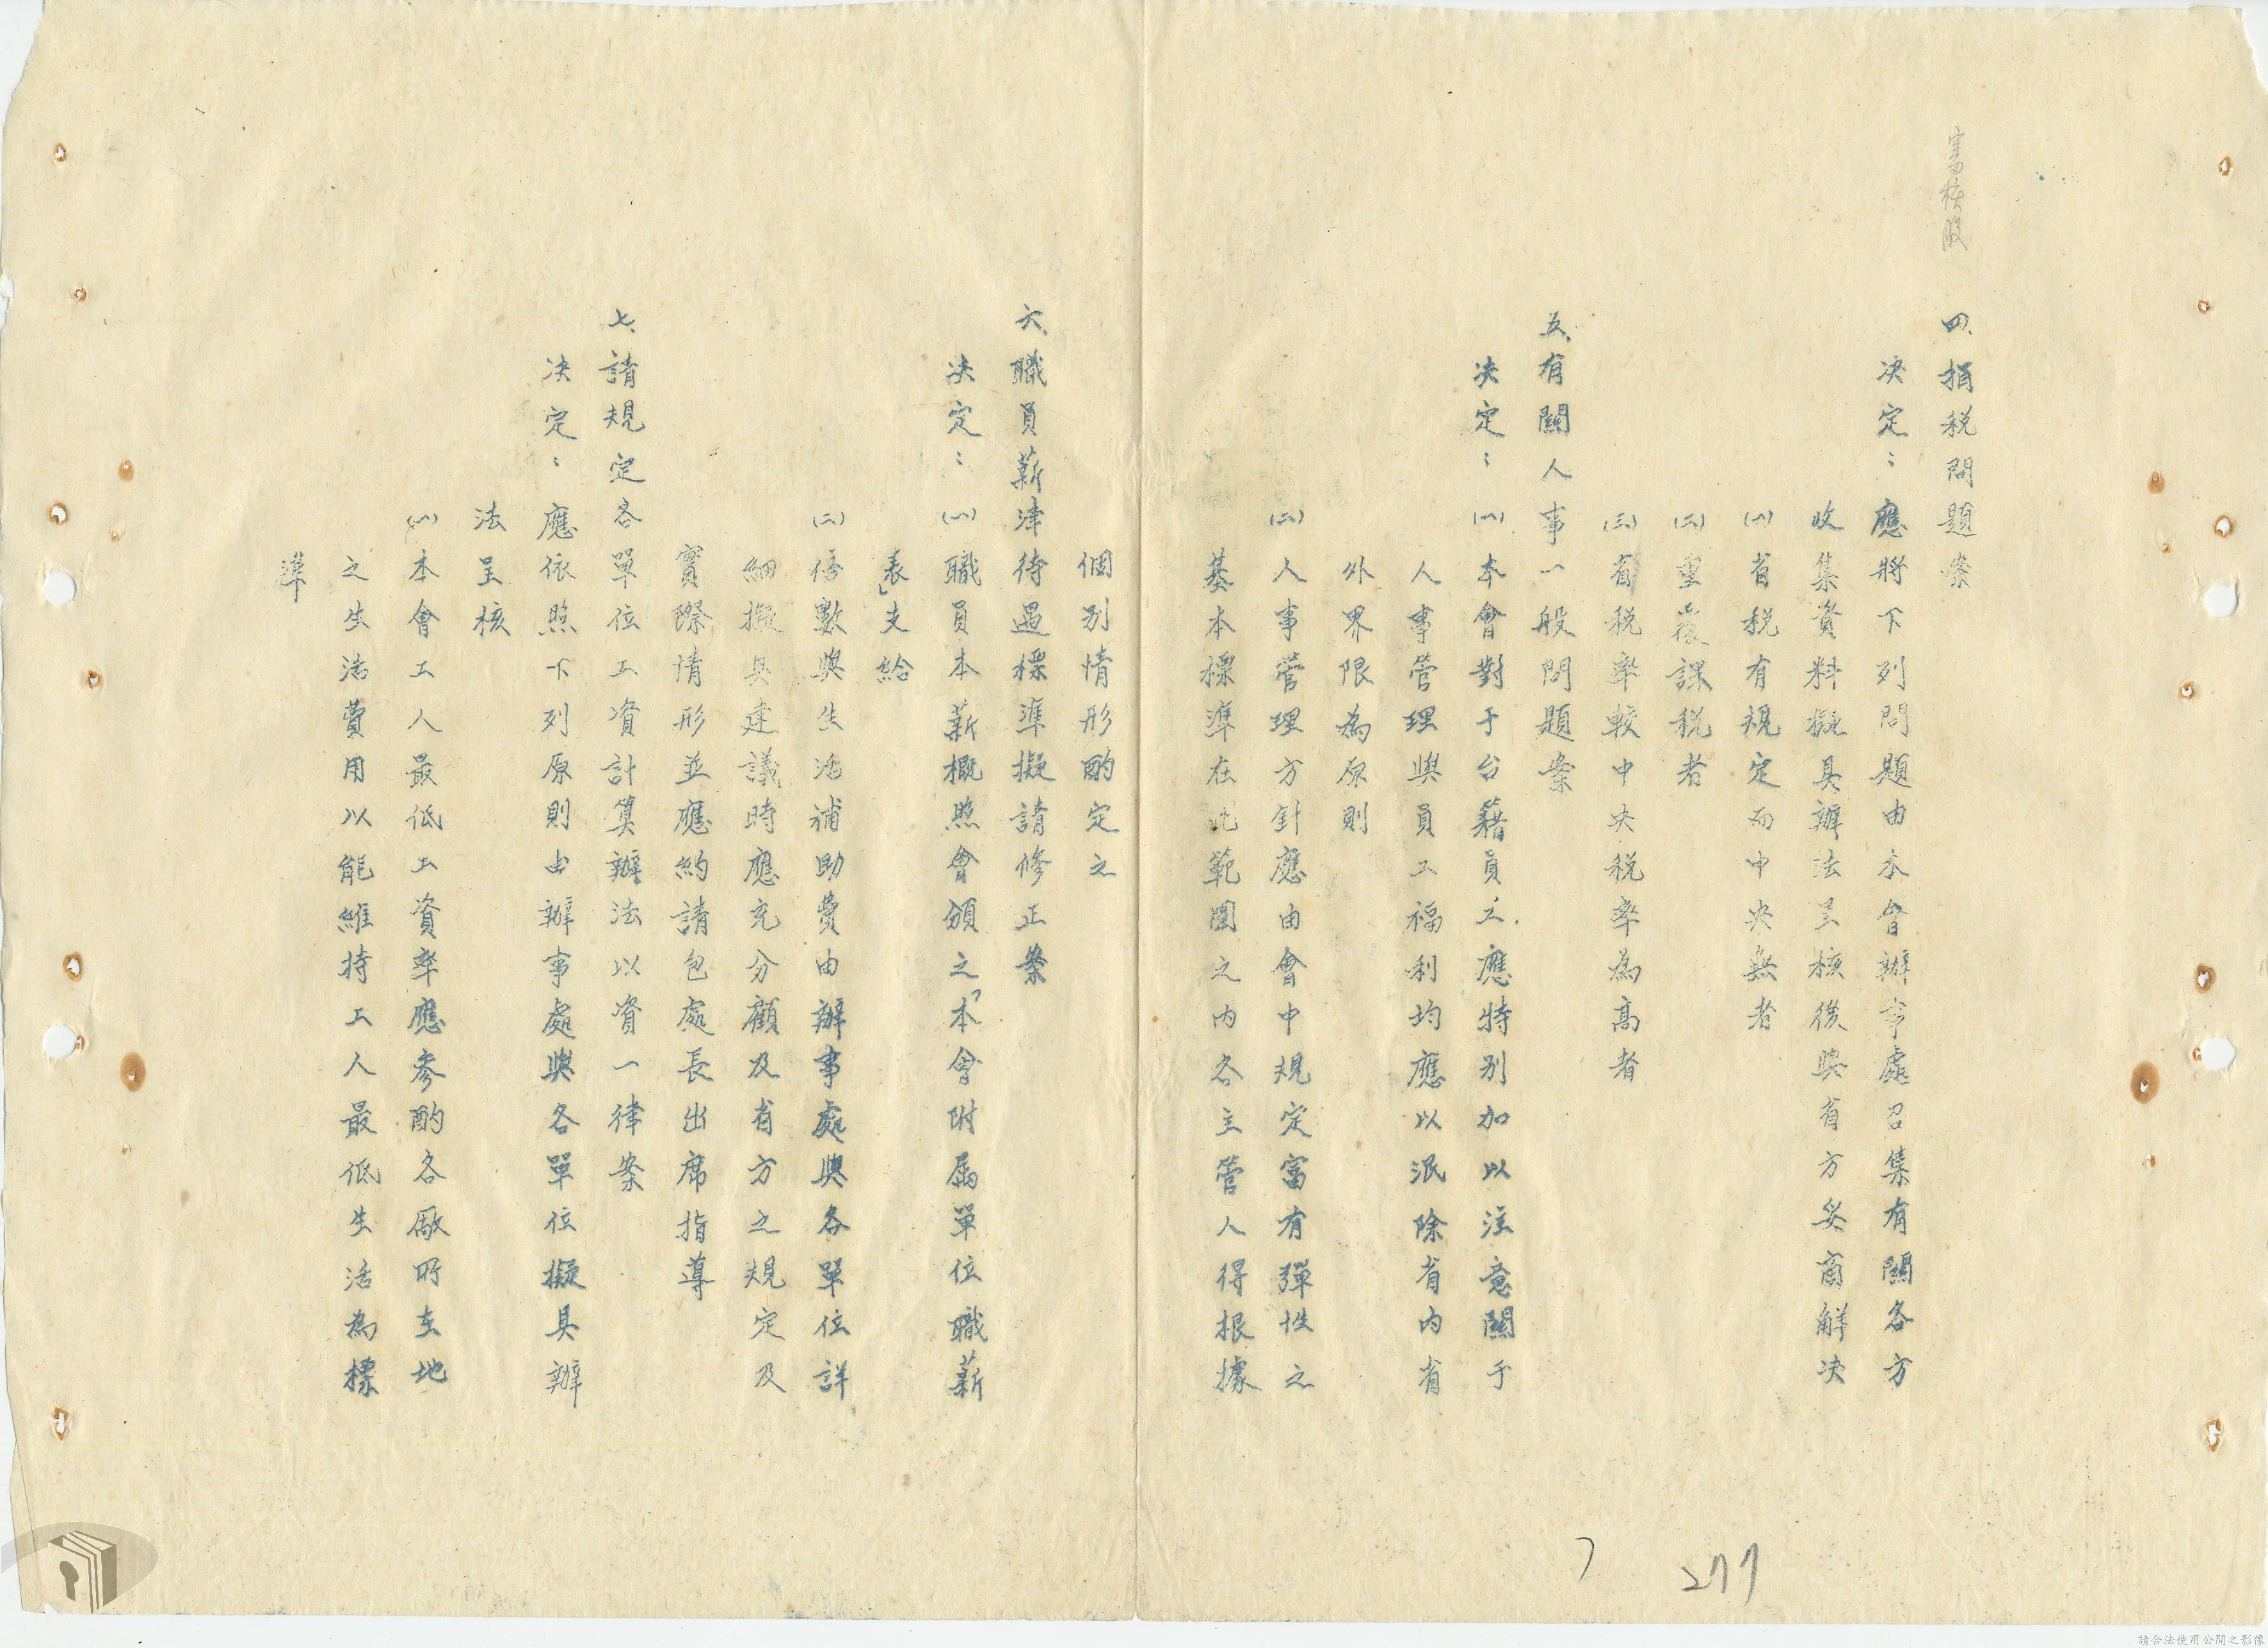 審核股
四、捐税問題案
决定：應將下列問題由本會辦事處召集有關各方
收集資料擬具辦法呈核後與省方妥商解决
(一)省税有規定而中央無者
(二)重複課税者
(三)省税率較中央税率為高者
五、有關人事一般問題案
决定：(一)本會對于台籍員工應特别加以注意關于
人事管理與員工福利均應以泯除省内省
外界限為原則
(二)人事管理方針應由會中規定富有彈性之
基本標準在此範圍之内各主管人得根據
個别情形酌定之
六、職員薪津待遇標準擬請修正案
决定：(一)職員本薪概照會頒之「本會附屬單位職薪
表」支給
(二)倍數與生活補助費由辦事處與各單位詳
細擬具建議時應充分顧及省方之規定及
實際情形並應約請包處長出席指導
七、請規定各單位工資計算辦法以資一律案
决定：應依照下列原則由辦事處與各單位擬具辦
法呈核
(一)本會工人最低工資率應參酌各廠所在地
之生活費用以能維持工人最低生活為標
準
7
277
請合法使用公開之影像